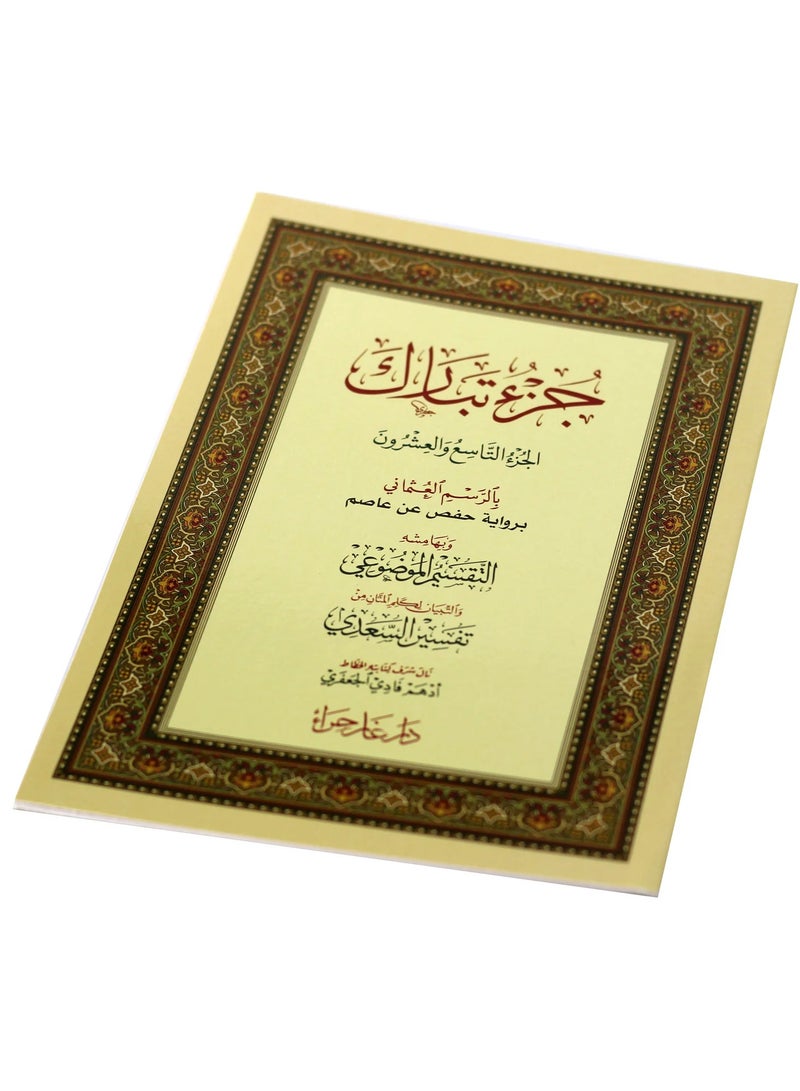 جُزْءُ تَبَارَكَ
الجُزْءُ التَّاسِعُ وَالعِشْرُونَ
بِالرَّسْمِ العُثْمَانِي
برواية حفص عن عاصم
وَبِهَامِشِهِ
التَّقْسِيمُ المَوْضُوعِي
وَالتِّبْيَان لِكَلِمِ المَنَّانِ مِنْ
تَفْسِيْر السَّعْدِي
نَالَ شَرَفَ كِتَابَتِهِ الخَطَّاط
أَدْهَم فَادِي الجَعْفَرِي
دَار غَار حِرَاء